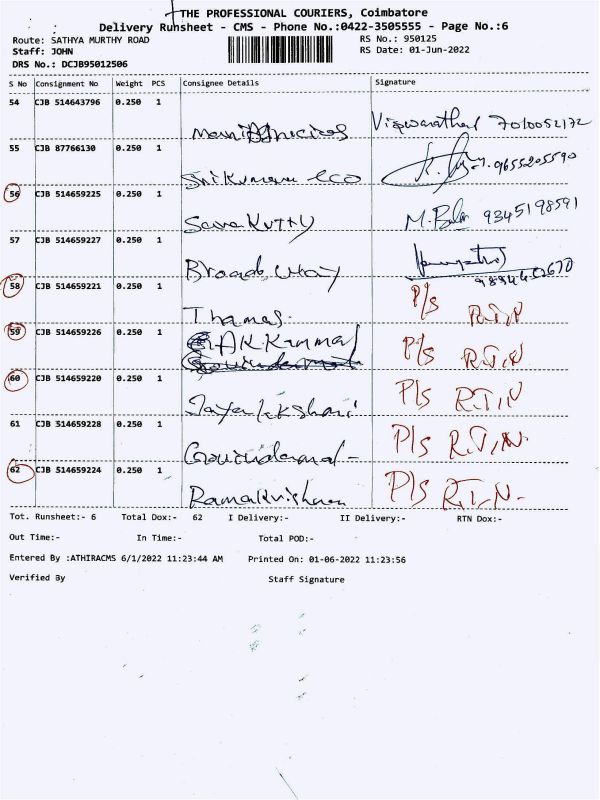 THE PROFESSIONAL COURIERS, Coimbatore
Delivery Runsheet - CMS - Phone No.:0422-3505555 - Page No.:6
Route: SATHYA MURTHY ROAD RS No.: 950125
Staff: JOHN RS Date: 01-Jun-2022
DRS No.: DCJB95012506
S No Consignment No Weight PCS Consignee Details Signature
54 CJB 514643796 0.250 1 7010052172
55 CJB 87766130 0.250 1 9655205590
56 CJB 514659225 0.250 1 SaraKutty M. 9345198591
57 CJB 514659227 0.250 1 Broad way
58 CJB 514659221 0.250 1 Thamas. P/s R.T.N
59 CJB 514659226 0.250 1 P/s R.T.N
60 CJB 514659220 0.250 1 P/s R.T.N
61 CJB 514659228 0.250 1 P/s R.T.N.
62 CJB 514659224 0.250 1 Ramakrishnan P/s R.T.N.
Tot. Runsheet:- 6 Total Dox:- 62 I Delivery:- II Delivery:- RTN Dox:-
Out Time:- In Time:- Total POD:-
Entered By :ATHIRACMS 6/1/2022 11:23:44 AM Printed On: 01-06-2022 11:23:56
Verified By Staff Signature